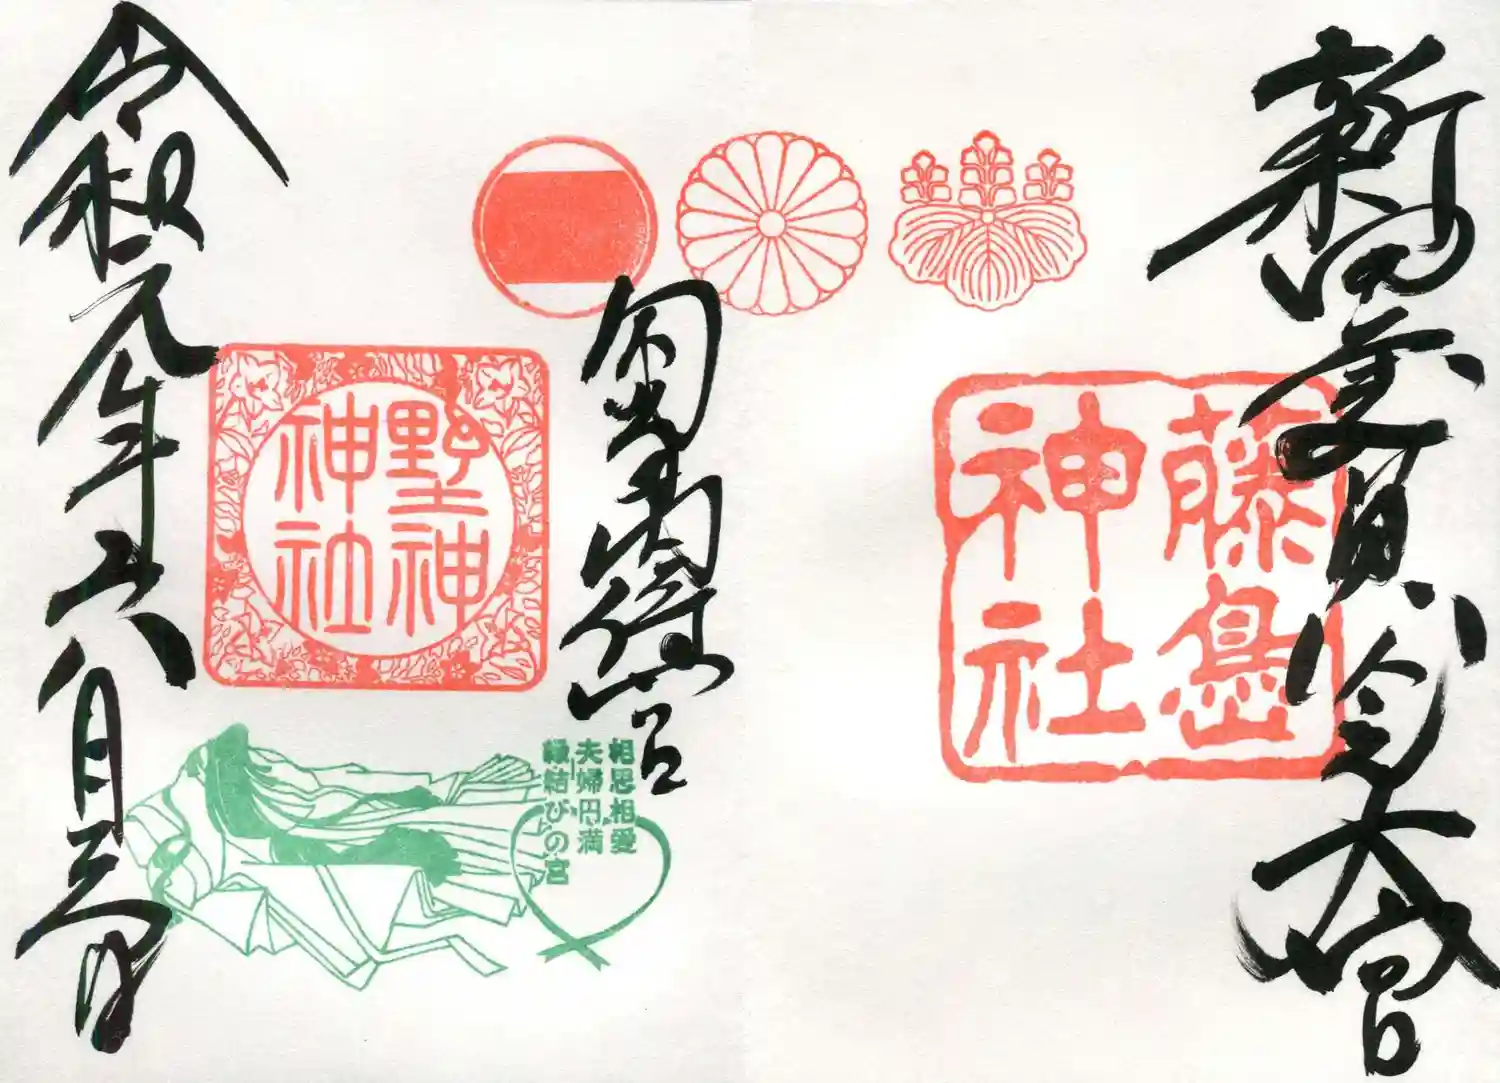 新田義貞 大宮
藤島
神社
勾当内侍宮
野神
神社
相思相愛
夫婦円満
縁結びの宮
令和元年六月三日